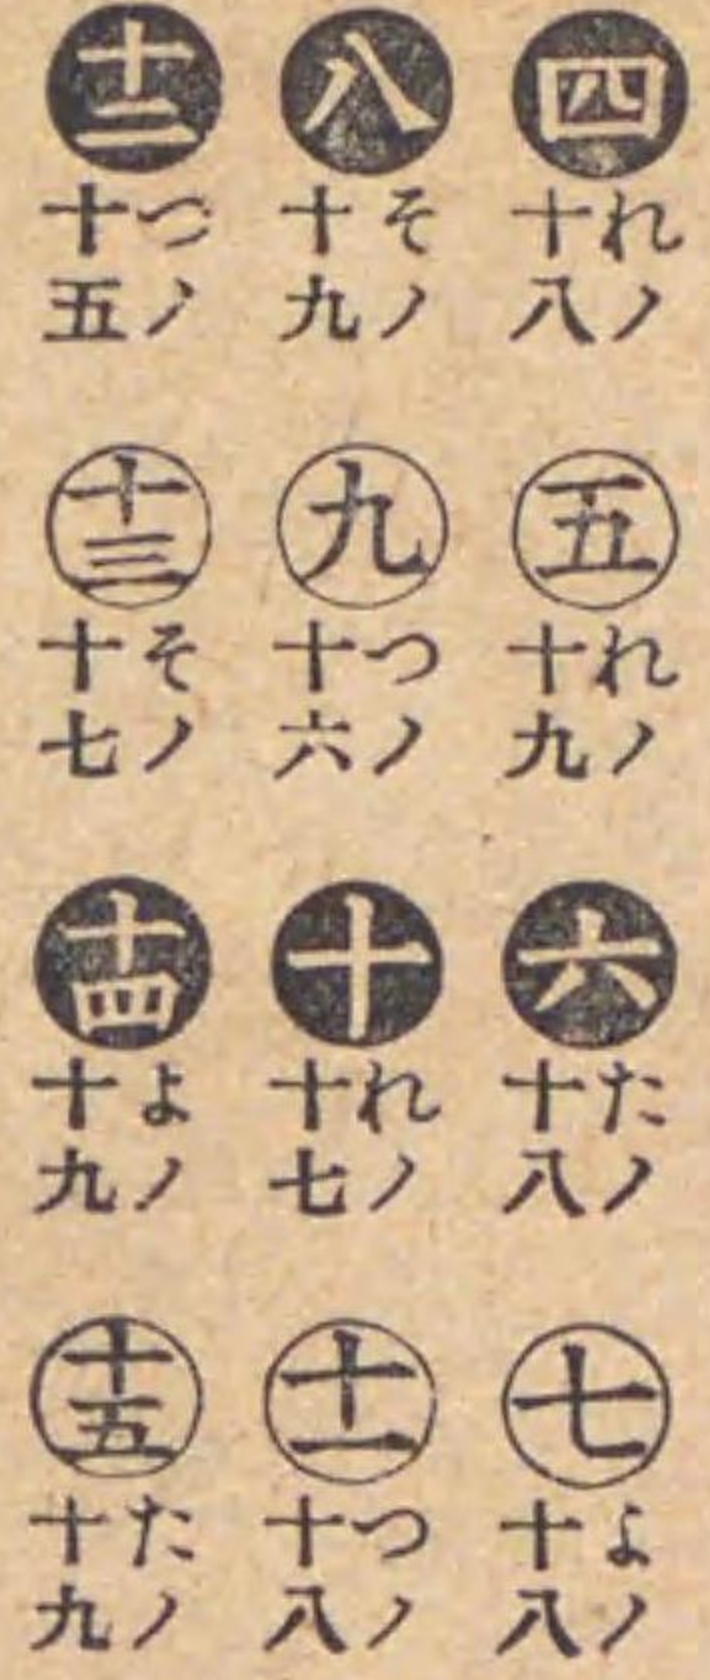 四
れノ
十八
五
れノ
十九
六
たノ
十八
七
よノ
十八
八
そノ
十九
九
つノ
十六
十
れノ
十七
十一
つノ
十八
十二
つノ
十五
十三
そノ
十七
十四
よノ
十九
十五
たノ
十九